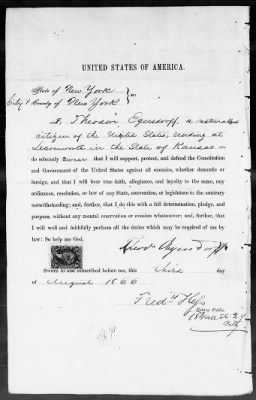 UNITED STATES OF AMERICA.
State of New York
City & County of New York } ss:
I, Theodor Egersdorff, a naturalized
citizen of the United States, residing at
Leavenworth in the State of Kansas—
do solemnly swear that I will support, protect, and defend the Constitution
and Government of the United States against all enemies, whether domestic
or foreign, and that I will bear true faith, allegiance, and loyalty to the same, any
ordinance, resolution, or law of any State, convention, or legislature to the contrary
notwithstanding; and, further, that I do this with a full determination, pledge, and
purpose, without any mental reservation or evasion whatsoever; and, further, that
I will well and faithfully perform all the duties which may be required of me by
law: So help me God.
Theod. Egersdorff
Sworn to and subscribed before me, this third day
of August 1866
Notary Public.
City